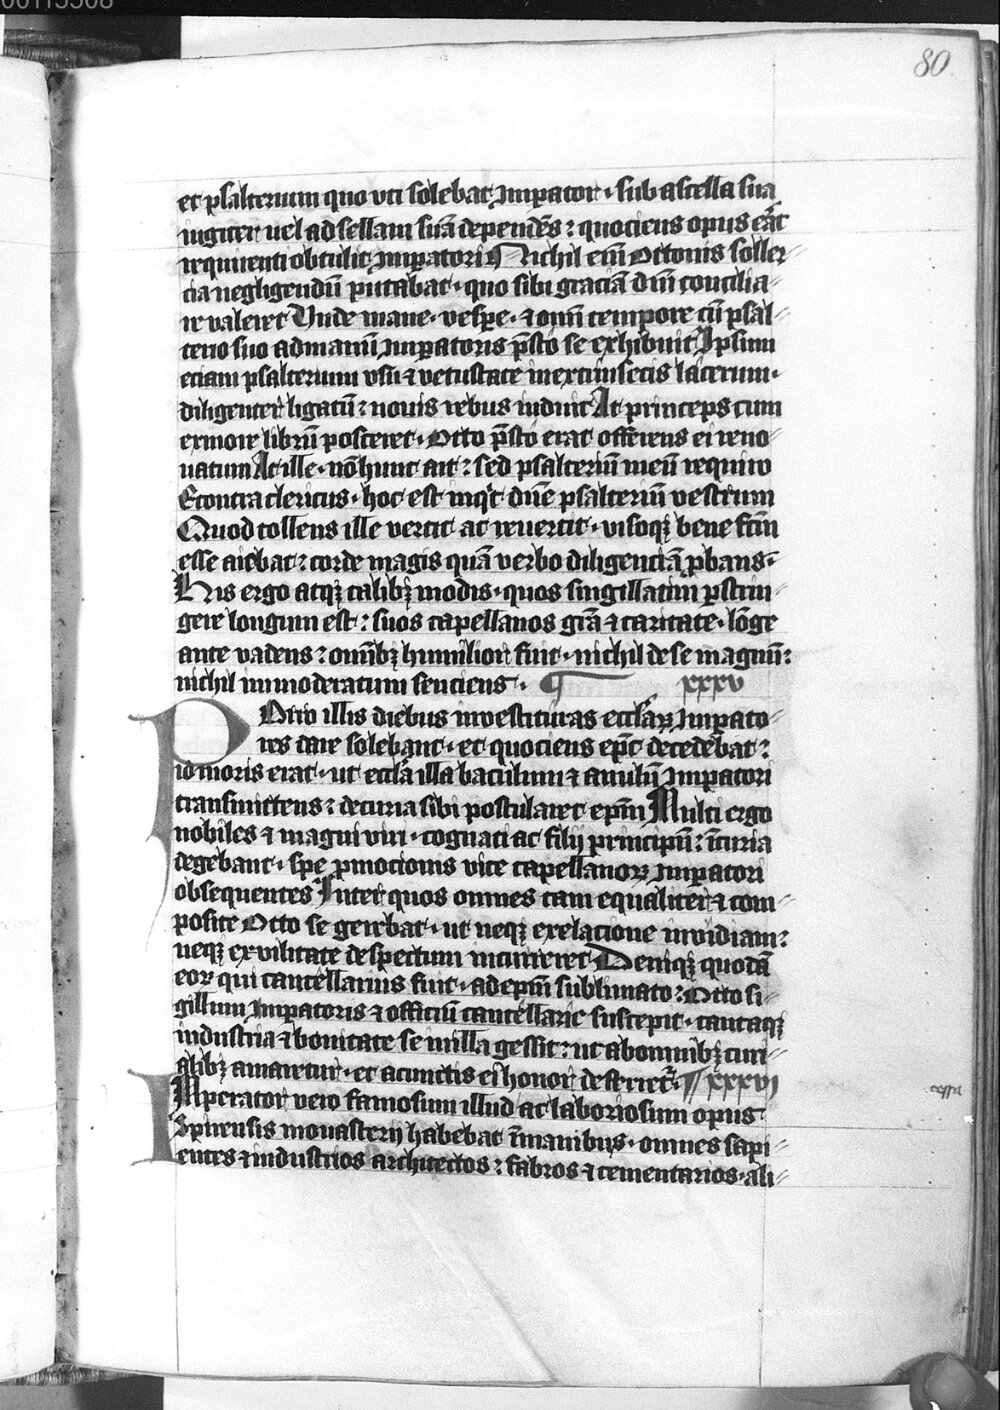 00113308
80
et psalterium quo uti solebat imꝑator · sub ascella sua
iugiter uel ad sellam suā dependēs : quociens opus eāt
requirenti obtulit imꝑatori Nichil eīn Ottonis soller
cia negligendū putabat · quo sibi graciā dnī concilia
re valeret Unde mane · vesꝑe · ⁊ omī tempore cū psal
terio suo ad manū imꝑatoris p̄sto se exhibuit Ipsum
etiam psalterium usu ⁊ vetustate in extrinsecis lacerum ·
diligenter ligatū : nouis rebus induit At princeps cum
ex more librū posceret · Otto p̄sto erat offerens ei reno
uatum At ille · nō hunc ait : sed psalteriū meū requiro
Econtra clericus · hoc est inqͥt dn̄e psalteriū vestrum
Quod tollens ille vertit ac reuertit · visoqꝫ bene fc̄m
esse aiebat : corde magis quā verbo diligenciā ꝓbans ·
His ergo atqꝫ talibꝫ modis · quos singillatim ꝑstrin
gere longum est : suos capellanos grā ⁊ caritate · lōge
ante vadens : omībꝫ humilior fuit · nichil de se magnū :
nichil immoderatum senciens · ¶ xxxv
Porro illis diebus inuestituras eccl̄aꝝ imꝑato
res dare solebant · et quociens ep̄c decedebat :
id moris erat · ut eccl̄a illa baculum ⁊ anulū imꝑatori
transmittens : de curia sibi postularet ep̄m Multi ergo
nobiles ⁊ magni viri · cognati ac filij principū : ī curia
degebant · spe ꝓmocionis vice capellanoꝝ imꝑatori
obsequentes Inter quos omnes tam equaliter ⁊ com
posite Otto se gerebat · ut neqꝫ ex elacione inuidiam :
neqꝫ ex vilitate despectum incurreret Deniqꝫ quodā
eoꝝ qui cancellarius fuit · ad ep̄m sublimato : Otto si
gillum imꝑatoris ⁊ officiū cancellarie suscepit · tantaqꝫ
industria ⁊ bonitate se in illa gessit : ut ab omnibꝫ curi
alibꝫ amaretur · et a cunctis ei honor deferret᷑ · ¶ xxxvi
Imperator vero famosum illud ac laboriosum opus
Spirensis monasterij habebat ī manibus · omnes sapi
entes ⁊ industrios architectos : fabros ⁊ cementarios · ali